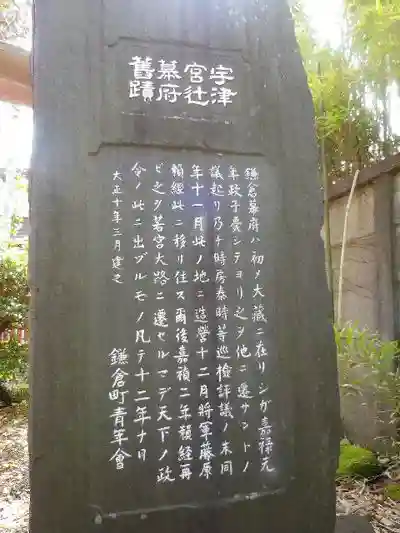 宇津
宮辻
幕府
舊蹟
鎌倉幕府ハ初メ大蔵ニ在リシガ嘉禄元
年政子薨シテヨリ之ヲ他ニ遷サントノ
議起リ乃チ時房泰時等巡検評議ノ末同
年十一月此ノ地ニ造営十二月将軍藤原
頼経此ニ移リ住ス爾後嘉禎二年頼経再
ビ之ヲ若宮大路ニ遷セルマデ天下ノ政
令ノ此ニ出ヅルモノ凡テ十二年ナリ
大正十年三月建之
鎌倉町青年會